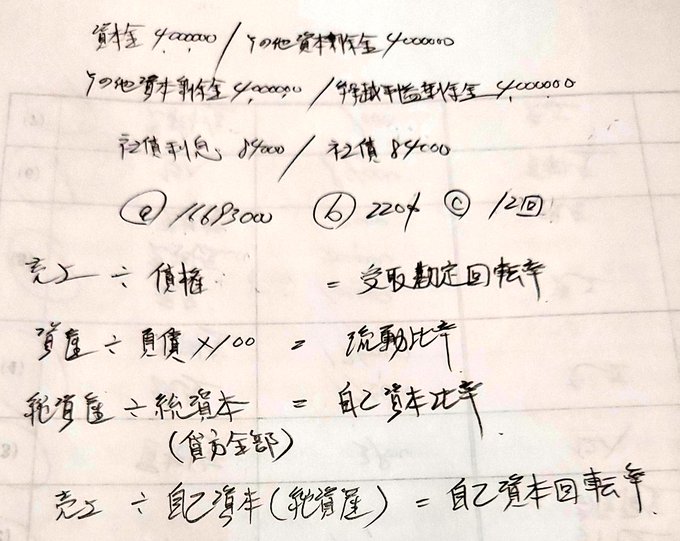 資本金 4,000,000 / その他資本剰余金 4000000
その他資本剰余金 4,000,000 / 繰越利益剰余金 4,000000
社債利息 84000 / 社債 84000
ⓐ 16693000 ⓑ 220% ⓒ 12回
売上 ÷ 債権 = 受取勘定回転率
資産 ÷ 負債 ×100 = 流動比率
純資産 ÷ 総資本 = 自己資本比率
(貸方全部)
売上 ÷ 自己資本(純資産) = 自己資本回転率